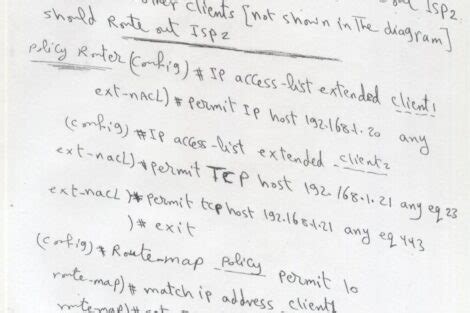 other clients [not shown in The diagram]
should Route out ISP2
policy Router (config) # IP access-list extended client1
ext-nacl) # permit IP host 192.168.1.20 any
(config) # IP access-list extended client2
ext-nacl) # permit TCP host 192.168.1.21 any eq 23
ext-nacl) # permit tcp host 192.168.1.21 any eq 443
) # exit
(config) # Route-map policy permit 10
route-map) # match ip address client1